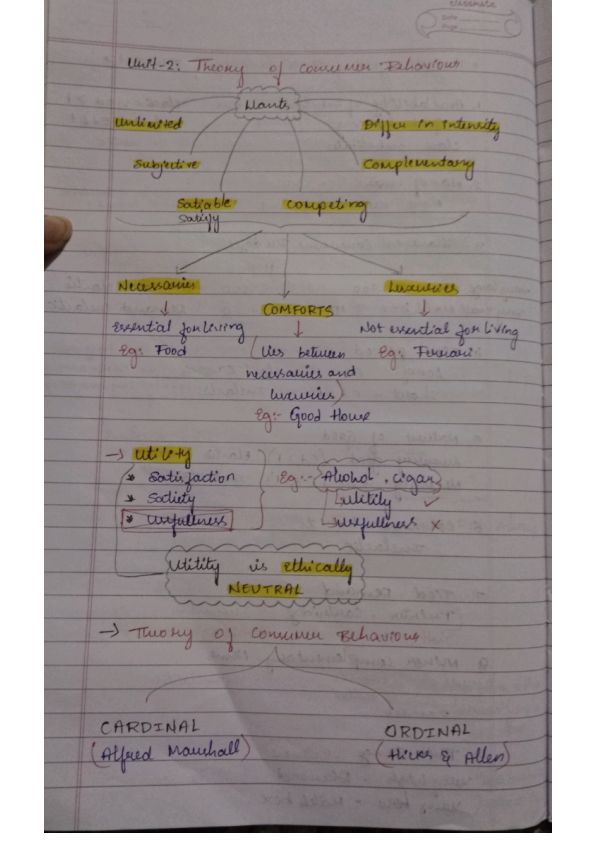 classmate
Date
Page
Unit-2: Theory of Consumer Behaviour
Wants
Unlimited
Differ in intensity
Subjective
Complementary
Satiable
Competing
Satisfy
Necessaries
Luxuries
COMFORTS
Essential for living
Not essential for living
Eg: Food
(lies between
Eg: Ferrari
necessaries and
luxuries)
Eg:- Good House
→ Utility
* Satisfaction
Eg:- Alcohol, cigar
* Satiety
Utility ✓
* Usefullness
usefullness ×
Utility is ethically
NEUTRAL
→ Theory of Consumer Behaviour
CARDINAL
ORDINAL
(Alfred Marshall)
(Hicks & Allen)